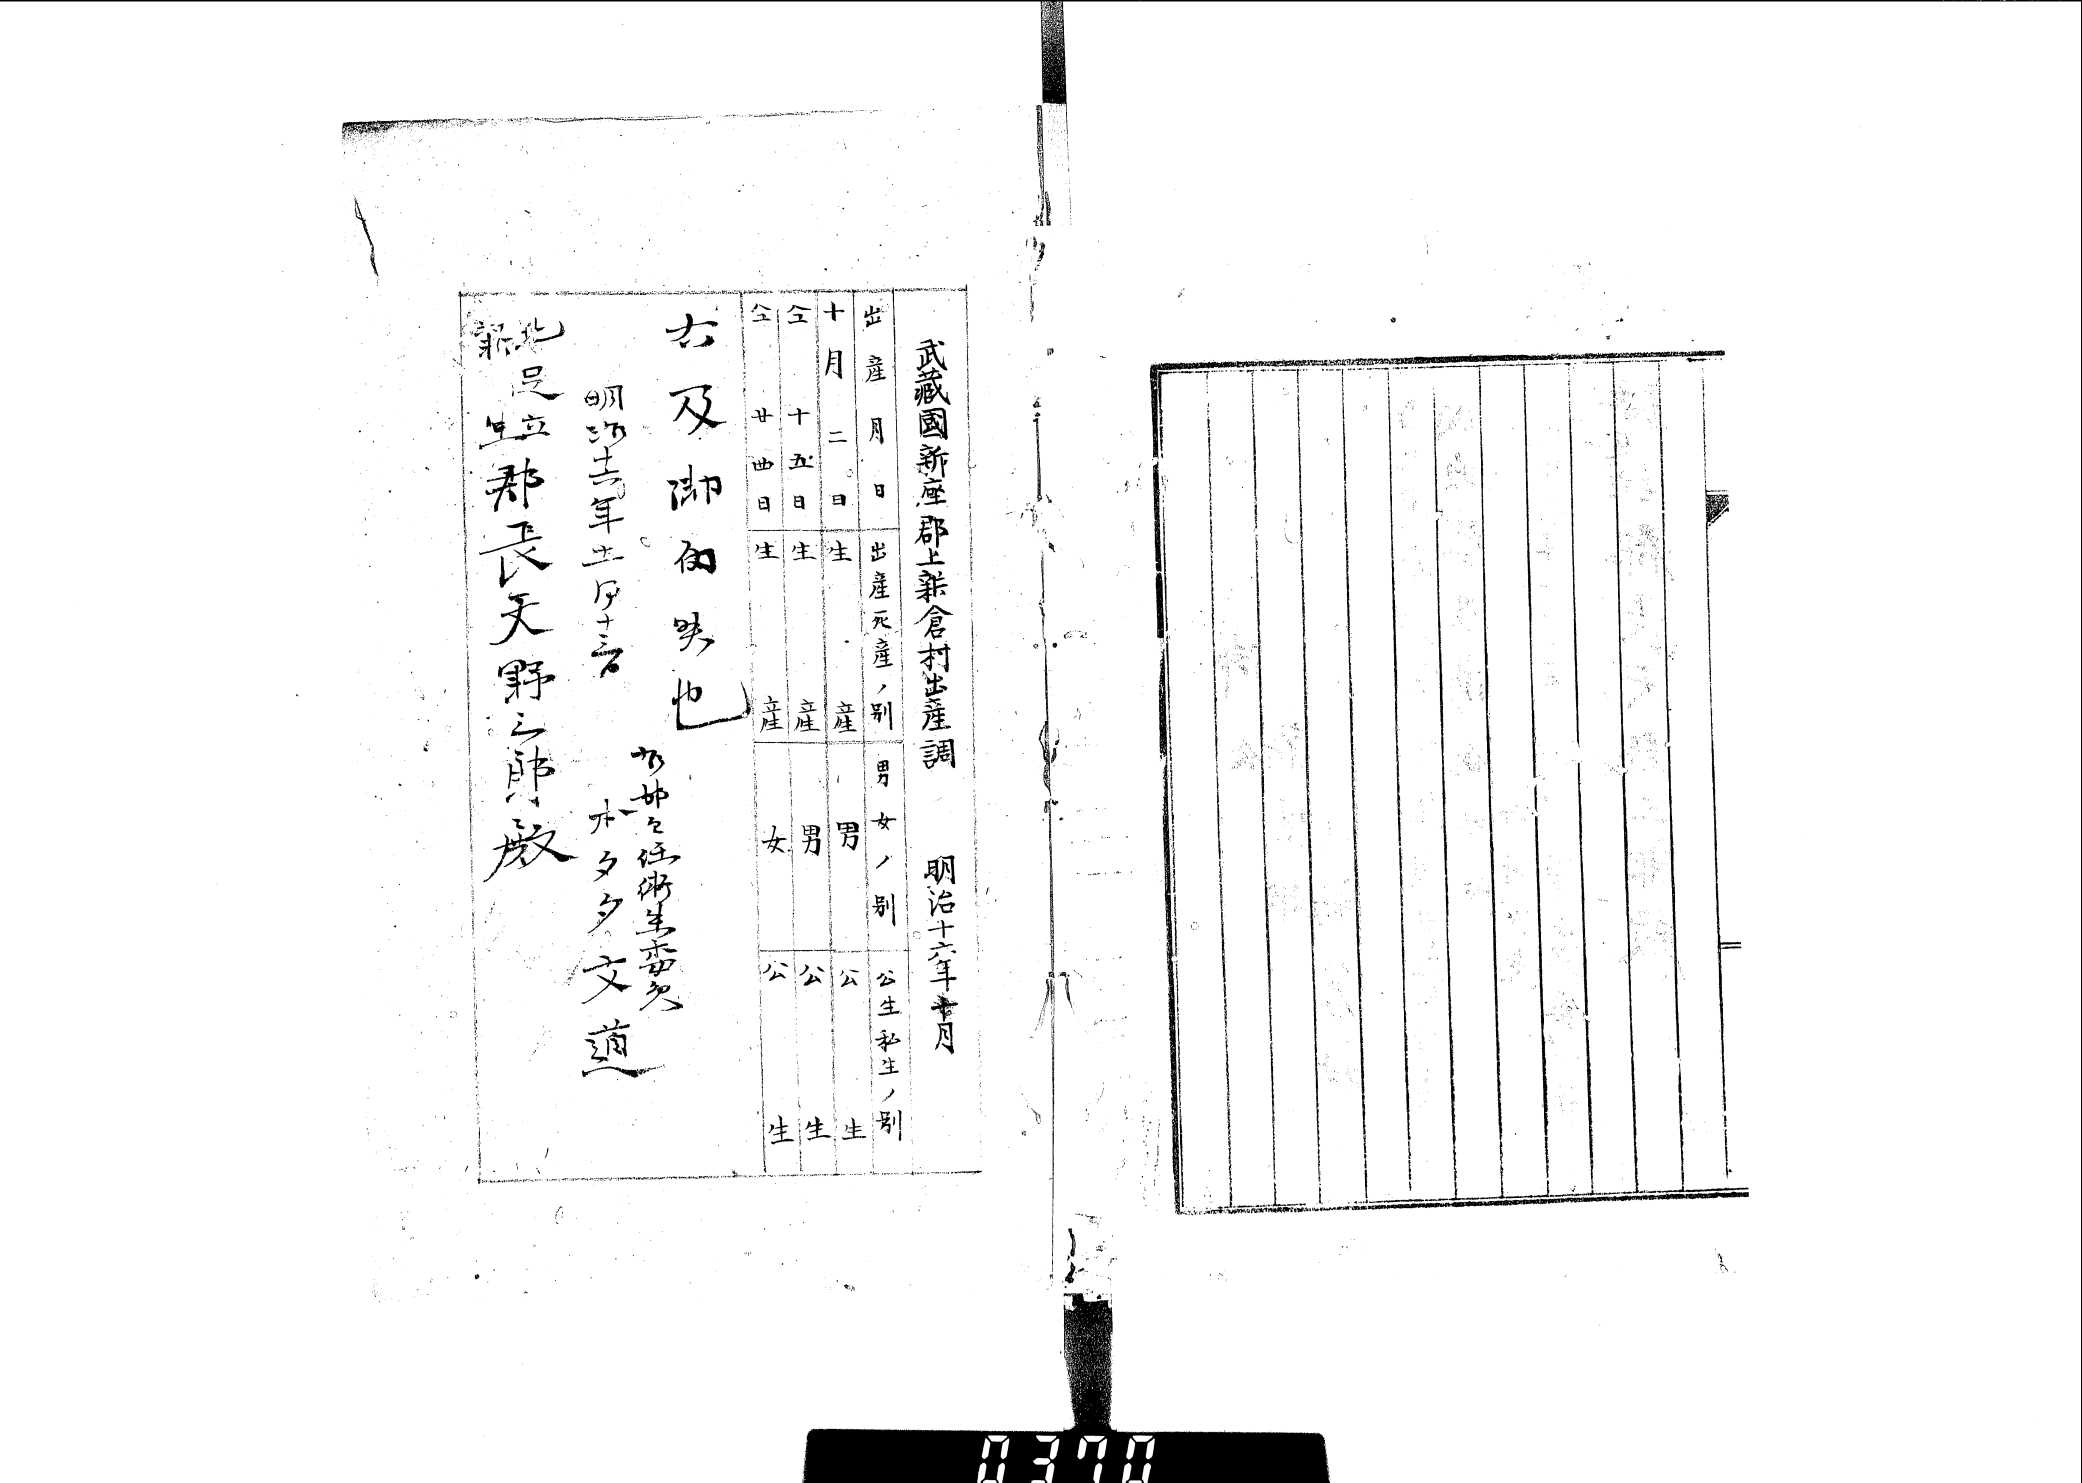 武藏國新座郡上新倉村出産調 明治十六年十月
出産月日 出産死産ノ別 男女ノ別 公生私生ノ別
十月二日 生産 男 公生
仝十五日 生産 男 公生
仝廿四日 生産 女 公生
右及御届候也
衛生委員
明治十六年十一月十三日
文適
北足立
新座
郡長天野三郎殿
0370